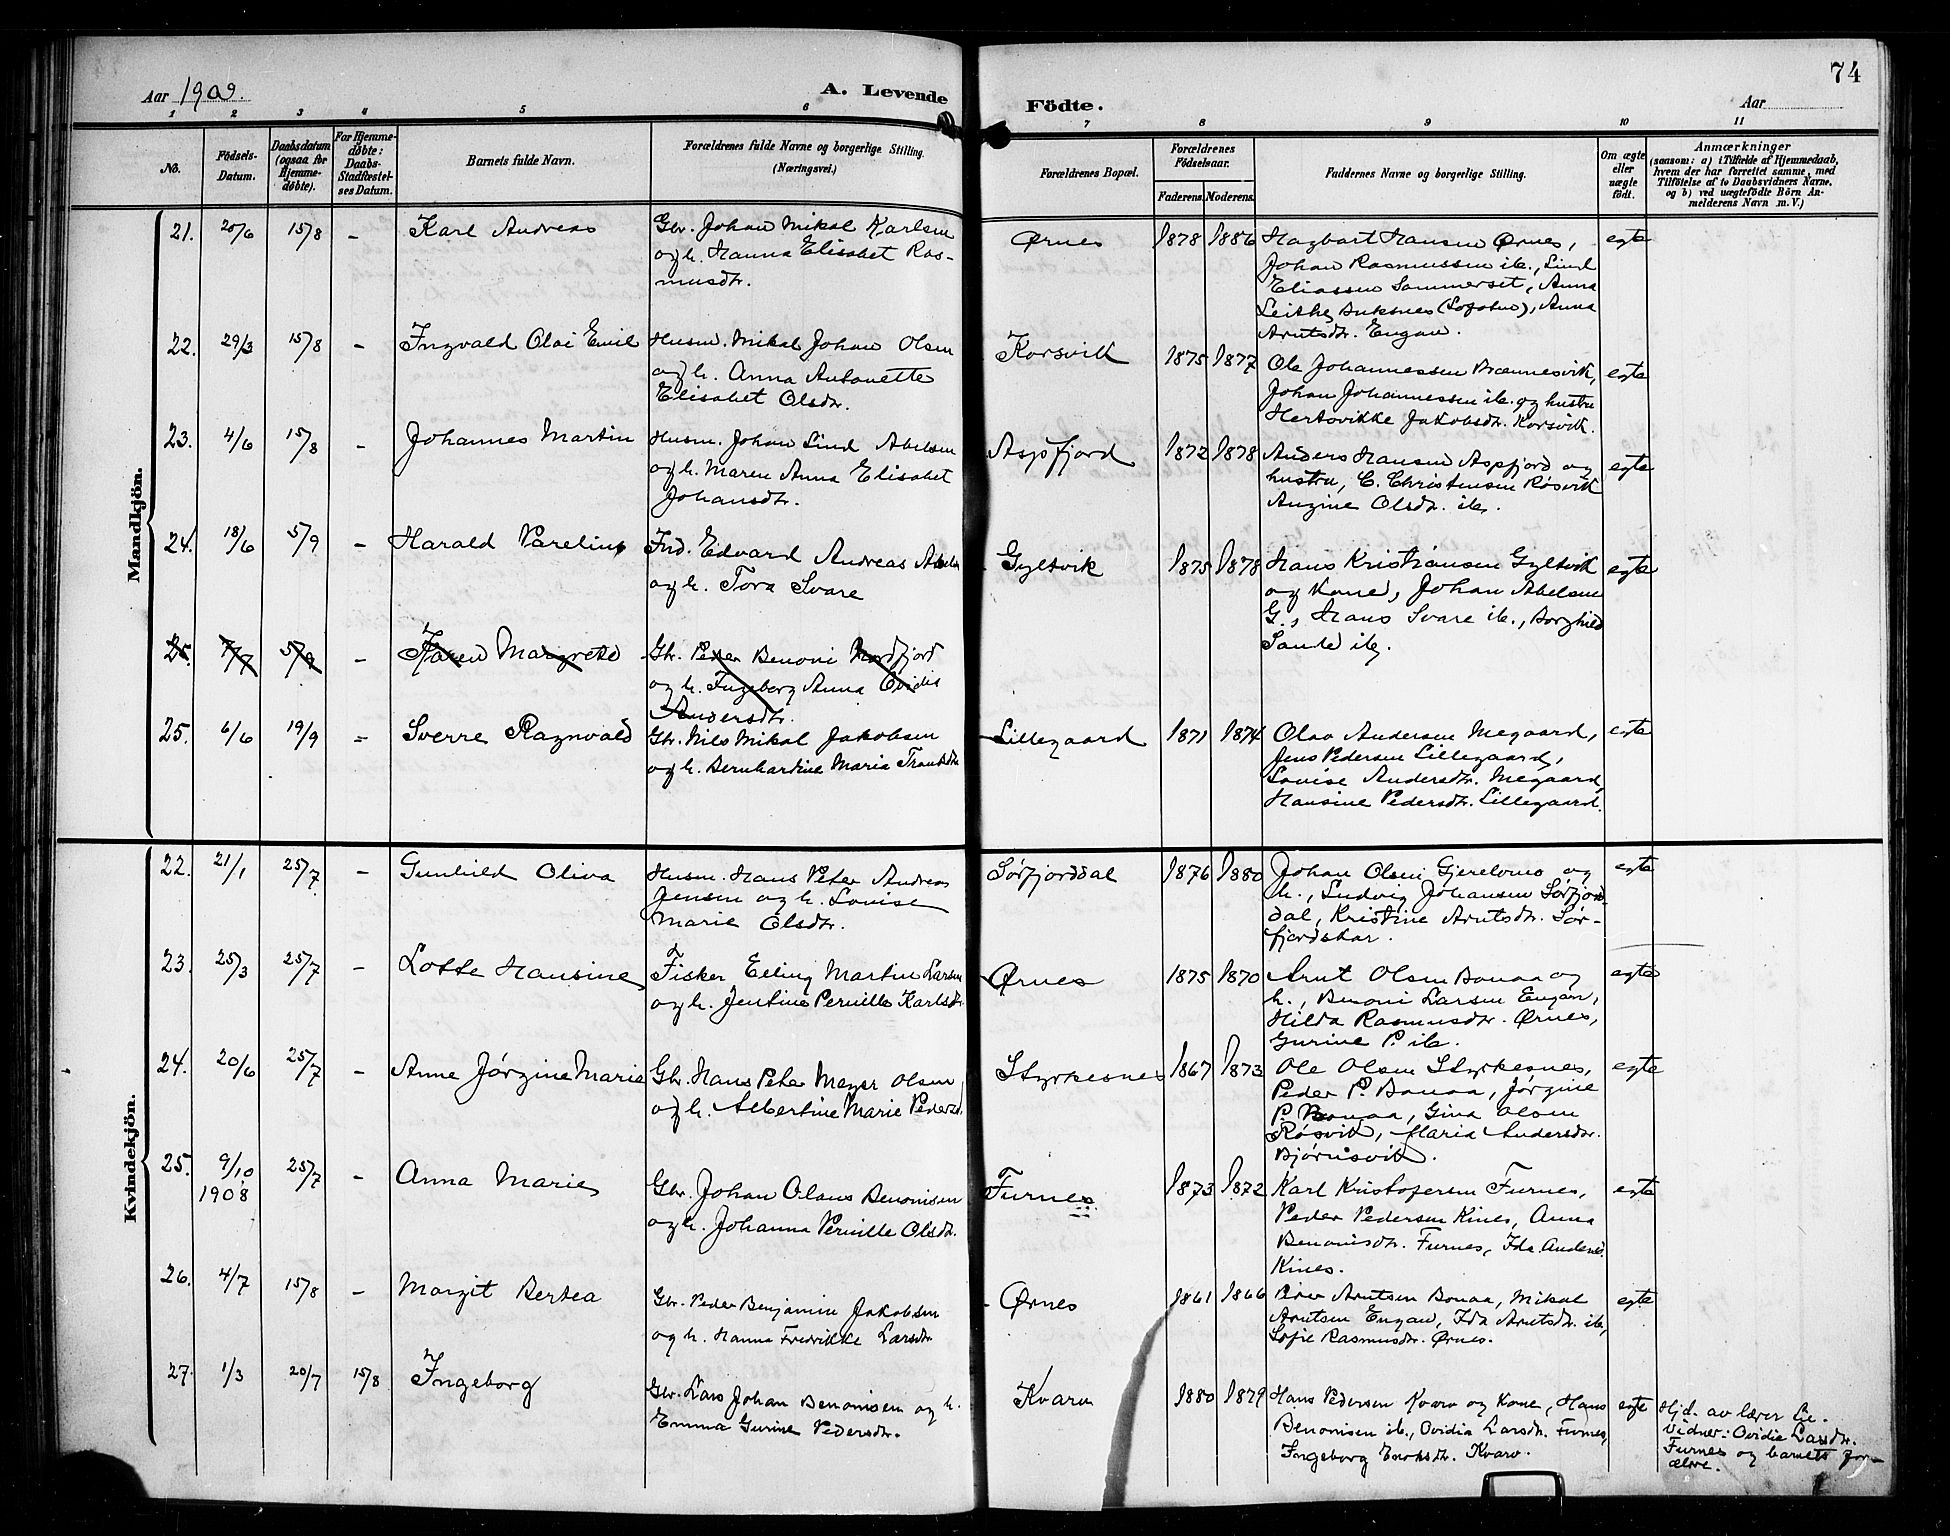 74
Aar 1909.
A. Levende
Födte.
Aar
1 2 3 4 5 6
7 8 9 10 11
No.
Födsels-
Datum.
Daabsdatum
(ogsaa for
Hjemme-
døbte).
For Hjemme-
døbte:
Daabs-
Stadfæstel-
ses Datum.
Barnets fulde Navn.
Forældrenes fulde Navne og borgerlige Stilling.
(Næringsvei.)
Forældrenes Bopæl.
Forældrenes
Födselsaar.
Faderens. Moderens.
Faddernes Navne og borgerlige Stilling.
Om ægte
eller
uægte
födt.
Anmærkninger
(saasom: a) i Tilfælde af Hjemmedaab,
hvem der har forrettet samme, med
Tilföielse af to Daabsvidners Navne,
og b) ved uægtefödte Börn An-
melderens Navn m. V.)
Mandkjön.
21. 20/6 15/8 - Karl Andreas
Gbr. Johan Mikal Karlsen
og h. Hanna Elisabet Ras-
musdtr.
Ørnes 1878 1886
Hagbart Hansen Ørnes,
Johan Rasmussen ib., Lind
Eliassen Sommerset, Anna
Leithe, (Lofoten), Anna
Arntsdtr. Engan.
egte
22. 29/3 15/8 - Ingvald Olai Emil
Husm. Mikal Johan Olsen
og h. Anna Antonette
Elisabet Olsdtr.
Korsvik 1875 1877
Ole Johannessen Brennesvik,
Johan Johannessen ib. og hustru
Hertovikke Jakobsdtr. Korsvik.
egte
23. 4/6 15/8 - Johannes Martin
Husm. Johan Lind Abelsen
og h. Maren Anna Elisabet
Johansdtr.
Aspfjord 1872 1878
Anders Hansen Aspfjord og
hustru, C. Christensen Røsvik
Angine Olsdtr. ib.
egte
24. 18/6 5/9 - Harald Parelius
Ind. Edvard Andreas Abelsen
og h. Tora Svare
Gyltvik 1875 1878
Hans Kristiansen Gyltvik
og Kone, Johan Abelsen
G., Hans Svare ib., Borghild
Sande ib.
egte
25. 7/7 5/9 - Karen Margrete
Gbr. Peder Benoni Nordfjord
og h. Ingeborg Anna Ovidie
Andersdtr.
25. 6/6 19/9 = Sverre Ragnvald
Gbr. Nils Mikal Jakobsen
og h. Bernhardine Maria
Lillegaard 1871 1874
Olav Andersen Megaard,
Jens Pedersen Lillegaard,
Lovise Andersdtr. Megaard
Hansine Pedersdtr. Lillegaard.
egte
Kvindekjön.
22. 21/1 25/7 - Gunhild Oliva
Husm. Hans Peter Andreas
Jensen og h. Lovise
Marie Olsdtr.
Sørfjorddal 1876 1880
Johan Olsen og
h., Ludvig Johansen Sørfjord-
dal, Kristine Arntsdtr. Sør-
fjordskar.
egte
23. 25/3 25/7 - Lotte Hansine
Fisker Elling Martin Larsen
og h. Jentine Pernille Karlsdtr.
Ørnes 1875 1870
Arnt Olsen Bonaa og
h., Benoni Larsen Engan,
Hilda Rasmusdtr. Ørnes,
Gurine P. ib.
egte
24. 20/6 25/7 - Anne Jørgine Marie
Gbr. Hans Peter Meyer Olsen
og h. Albertine Marie Pedersd.
Styrkesnes 1867 1873
Ole Olsen Styrkesnes,
Peder P. Bonaa, Jørgine
P. Bonaa, Gina Olsen
Røsvik, Maria Andersdtr.
Bjørnsvik.
egte
25. 9/10 1908 25/7 - Anna Marie
Gbr. Johan Olaus Benonisen
og h. Johanna Pernille Olsdtr.
Furnes 1873 1872
Karl Kristofersen Furnes,
Peder Pedersen Kines, Anna
Benonisdtr. Furnes, Ida Anders.
Kines.
egte
26. 4/7 15/8 - Margit Bertea
Gbr. Peder Benjamin Jakobsen
og h. Hanna Fredrikke Larsdtr
Ørnes 1861 1866
Peder Arntsen Bonaa, Mikal
Arntsen Engan, Ida Arntsdtr. ib,
Sofie Rasmusdtr. Ørnes.
egte
27. 1/3 20/7 15/8 Ingeborg
Gbr. Lars Johan Benonisen og h.
Emma Gurine Pedersdtr.
Kvarv 1880 1879
Hans Pedersen Kvarv og Kone, Hans
Benonisen ib., Ovidia Larsdtr. Furnes,
Ingeborg Enoksdtr. Kvarv.
egte
Hjd. av lærer Lie.
Vidner: Ovidia Larsdtr.
Furnes og barnets for-
ældre.